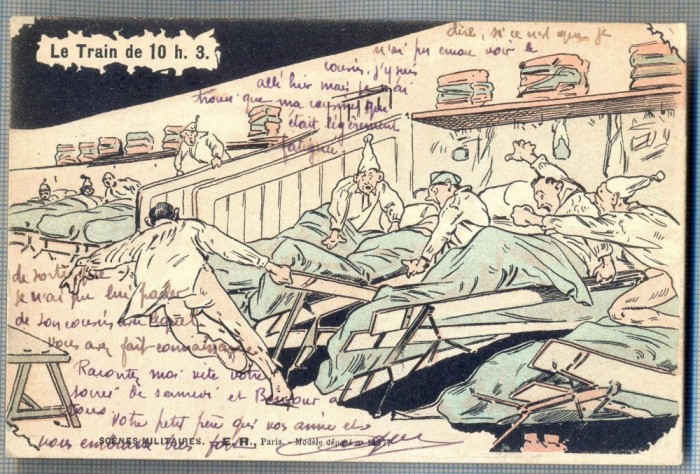 Le Train de 10 h. 3.
dire, si ce n'est que je
n'ai pu encore voir le
cousin. j'y suis
allé hier mais je n'ai
trouvé que ma cousine qui
était légèrement
fatiguée
de sorte que
je n'ai pu lui parler
de son cousin avec lequel
vous avez fait connaissance
Racontez moi vite votre
soirée de samedi et Bonjour à
tous
Votre petit frère qui vous aime et
vous embrasse très fort
SCÈNES MILITAIRES. — E. R., Paris. — Modèle déposé